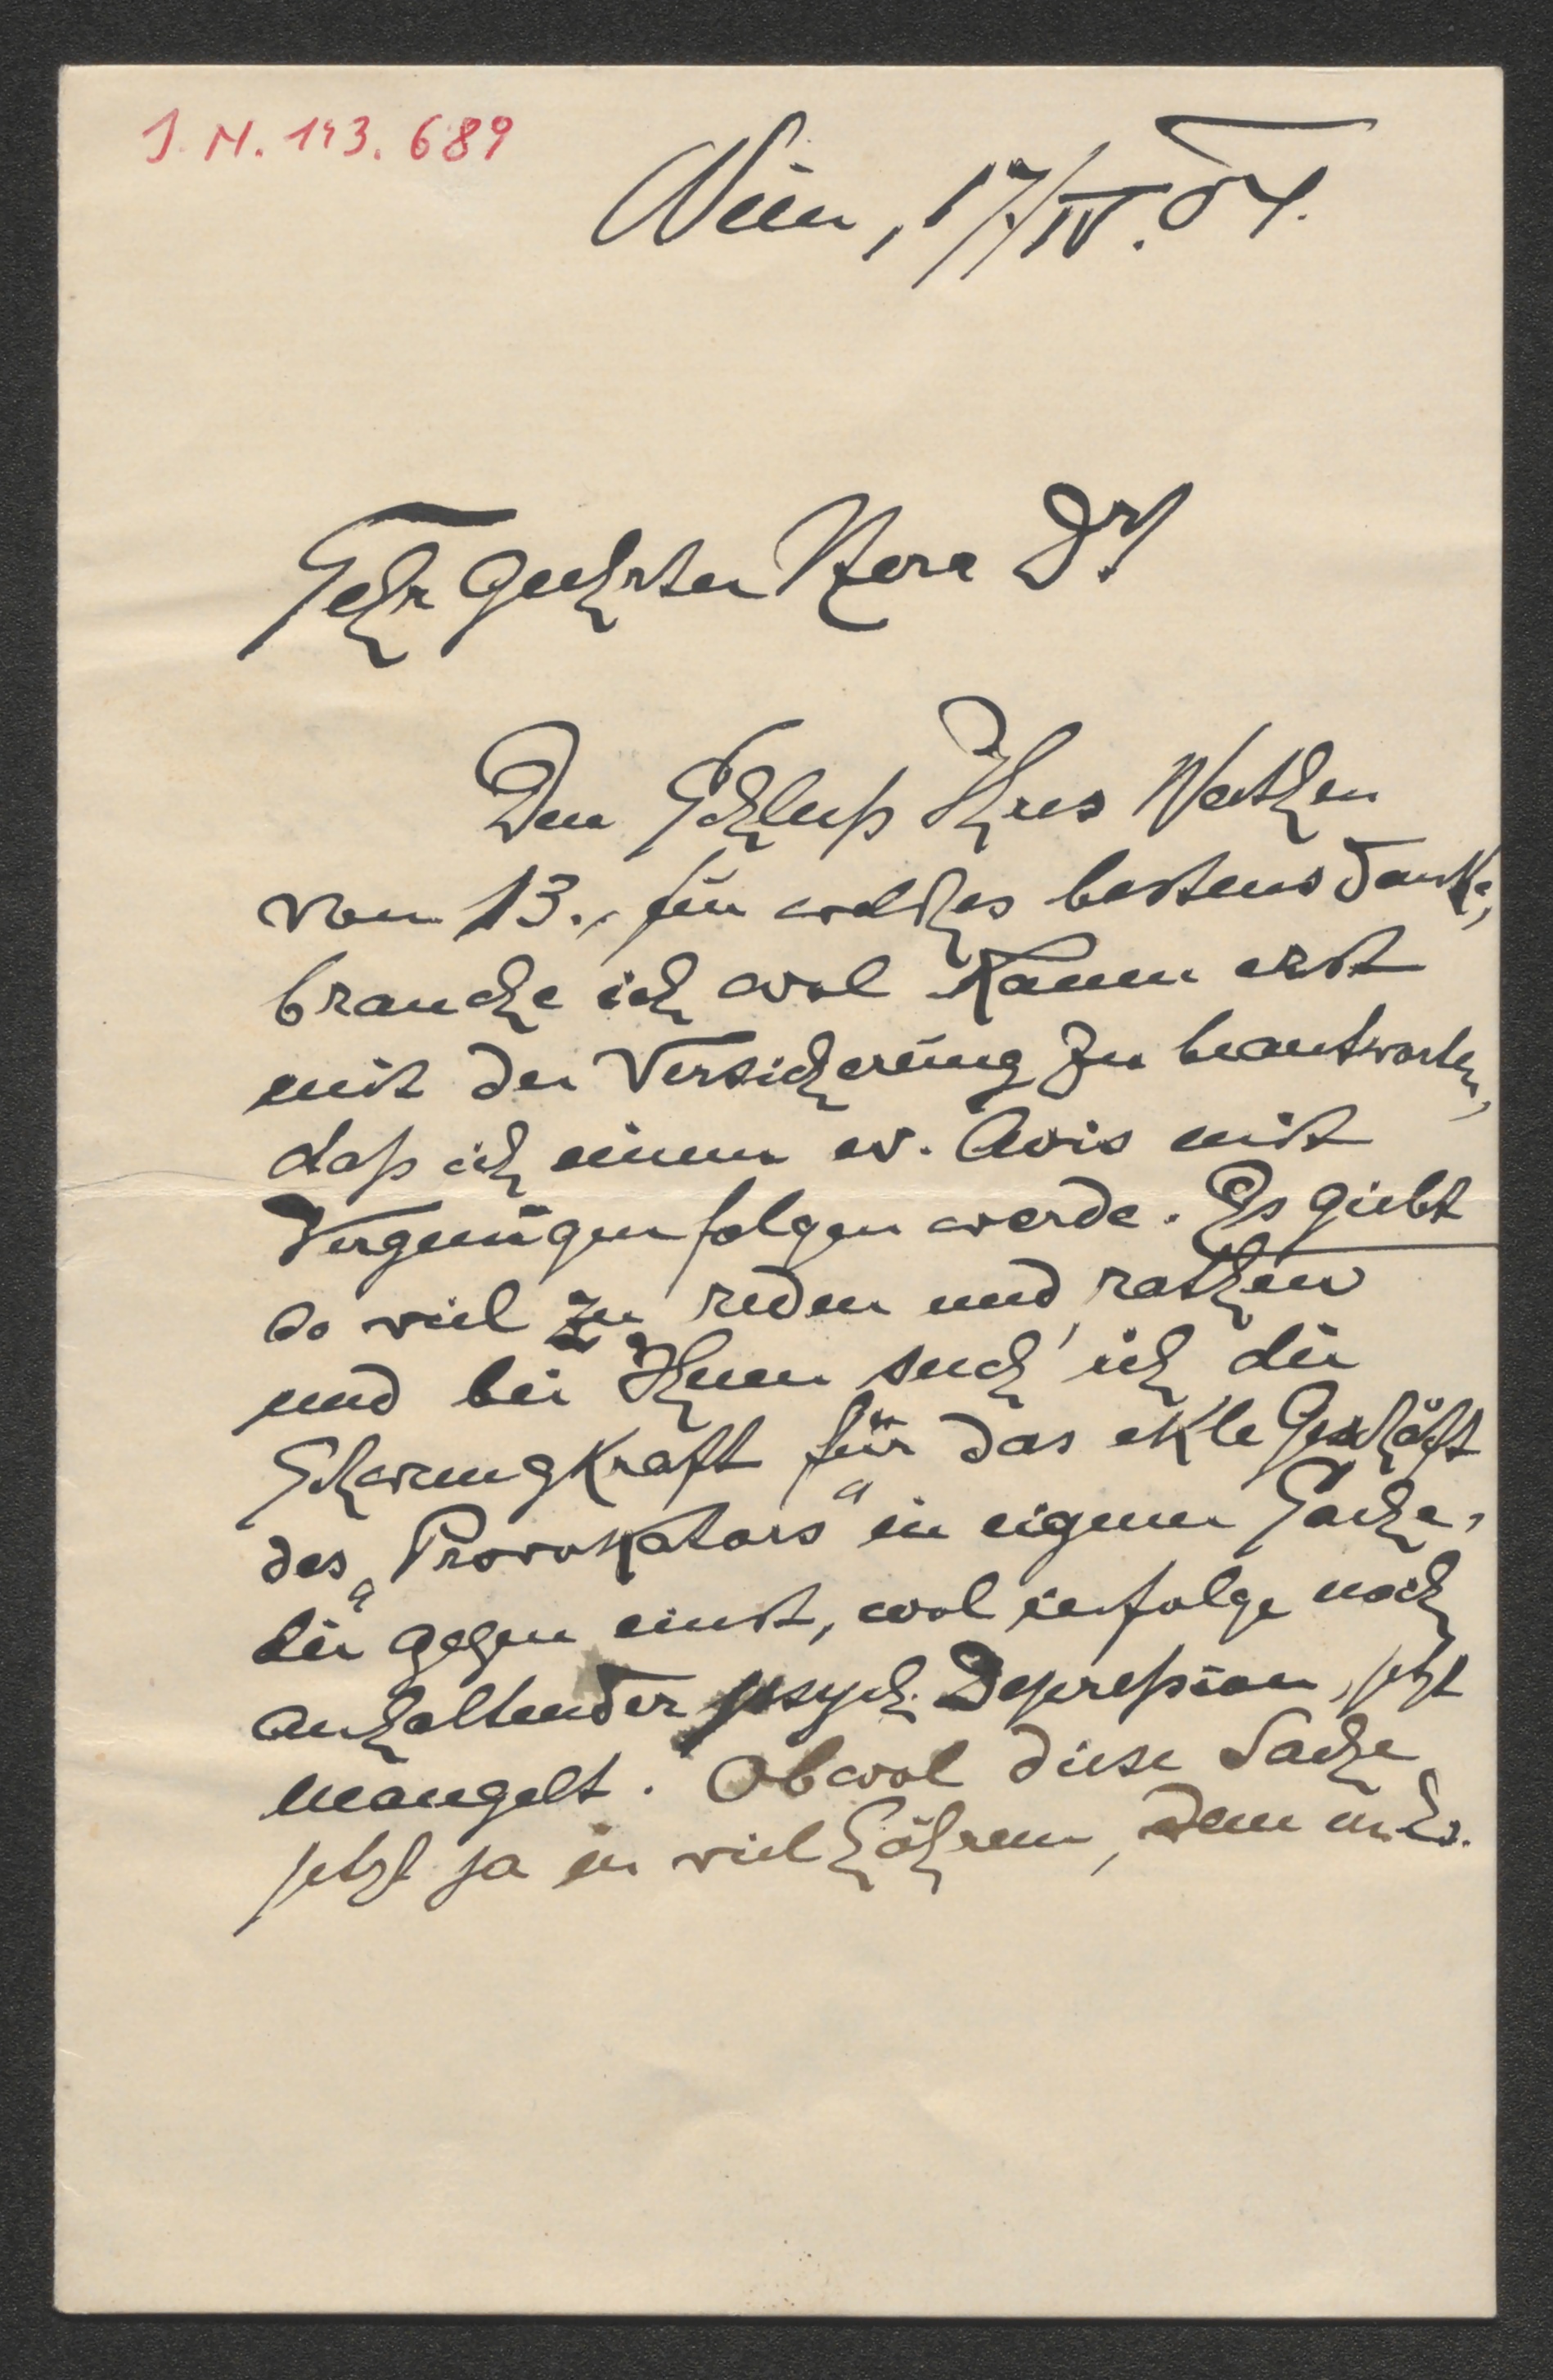 J. N. 143.689
Wien, 17./IV. 04.
Sehr geehrter Herr Dr!
Den Schluß Ihres Werthen
vom 13., für welches bestens danke,
brauche ich wol kaum erst
mit der Versicherung zu beantworten,
daß ich einem ev. Avis mit
Vergnügen folgen werde. Es giebt
so viel zu reden und rathen
und bei Ihnen such' ich die
Schwungkraft für das ekle Geschäft
des „Provokators" in eigener Sache,
die gegen einst, wol infolge noch
anhaltender psych. Depression, jetzt
mangelt. Obwol diese Sache
jetzt ja in viel höherem, dem